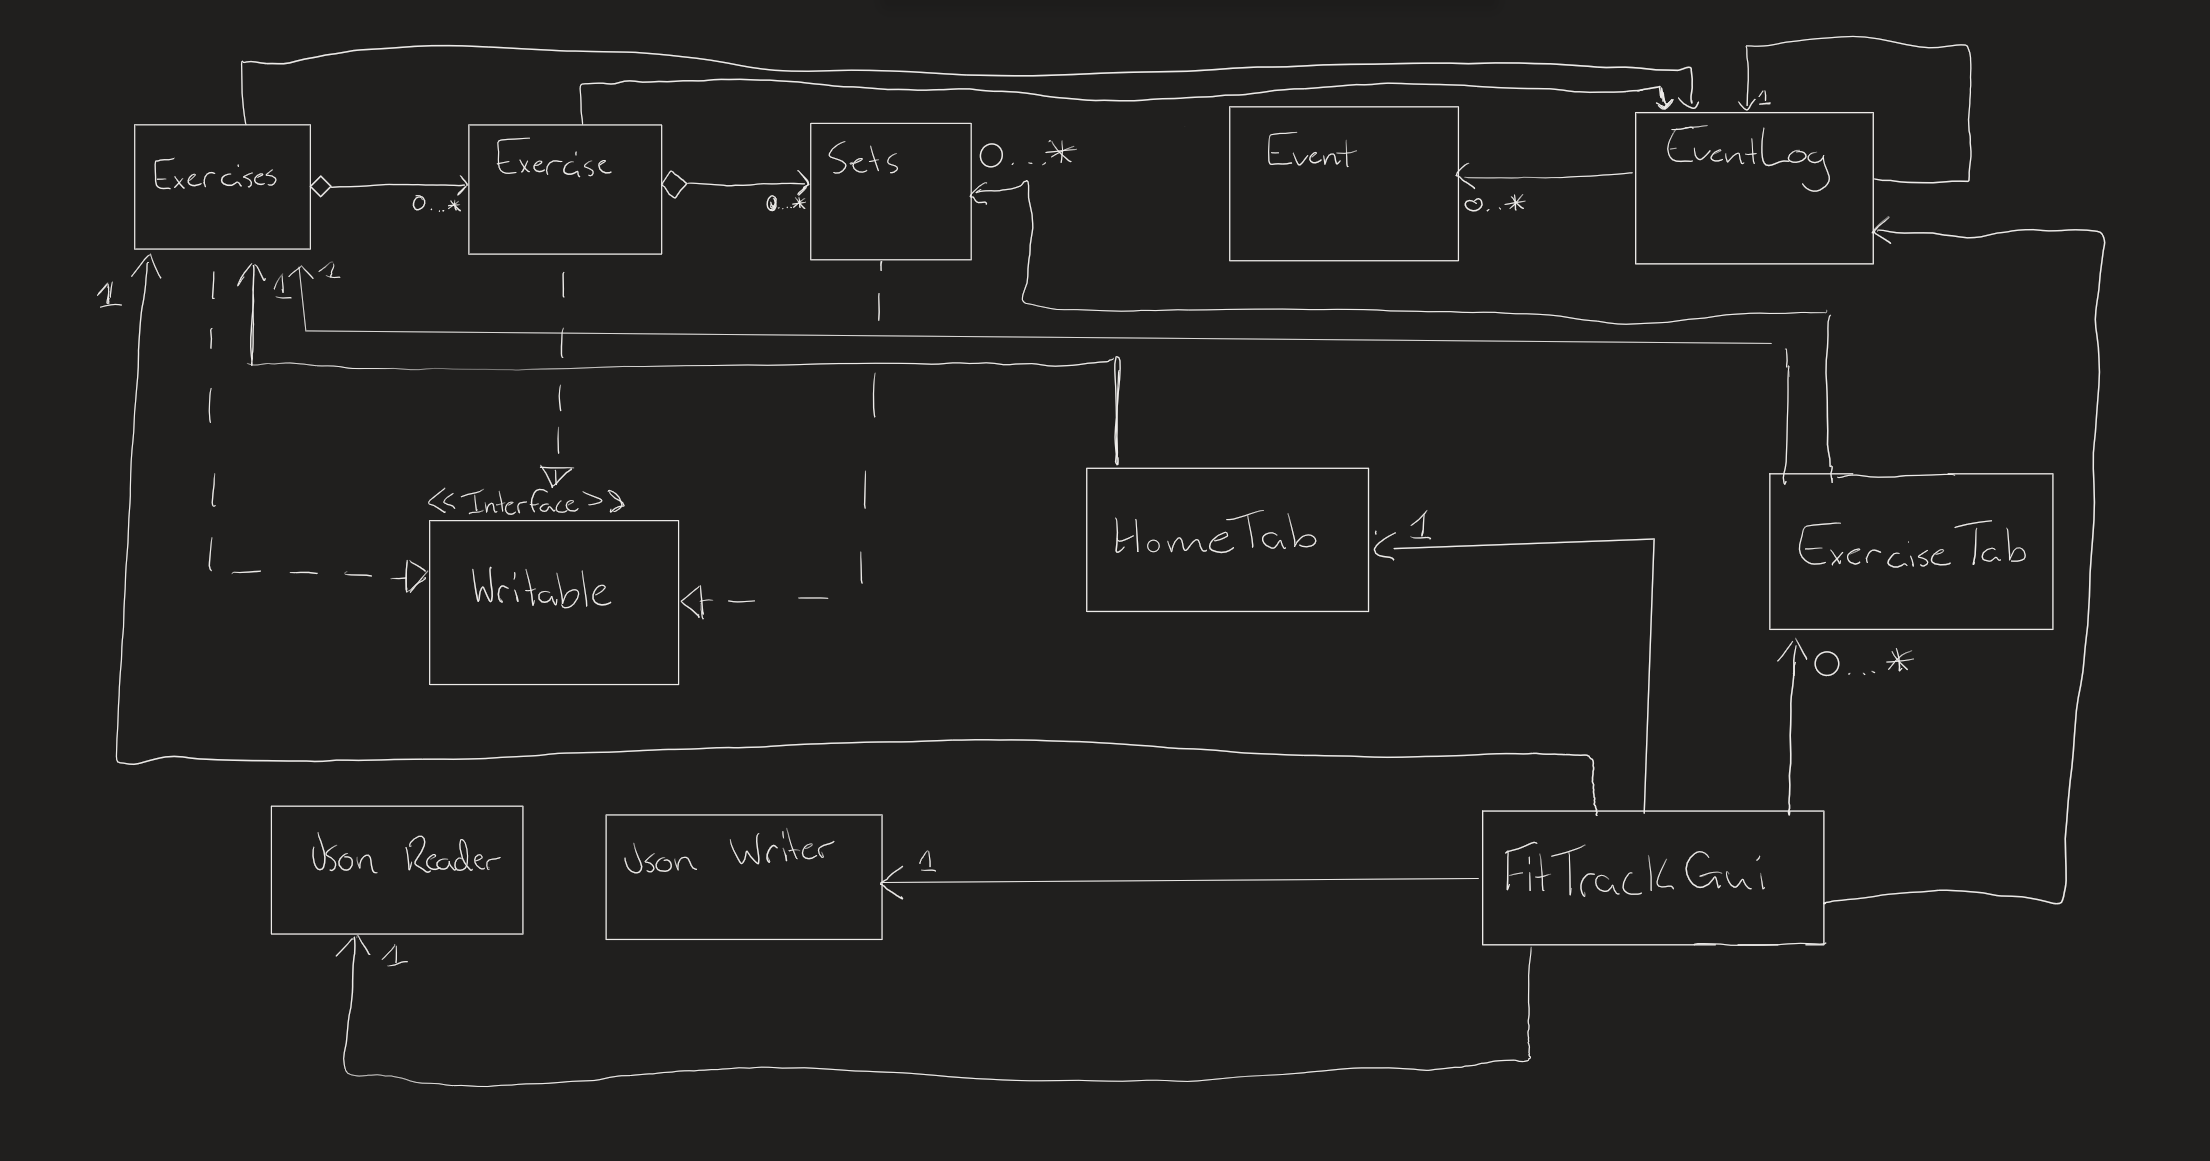 1
Exercises
Exercise
Sets
0...*
Event
EventLog
0...*
0...*
0..*
1
1
1
<<Interface>>
Writable
HomeTab
1
ExerciseTab
0...*
Json Reader
Json Writer
1
FitTrackGui
1